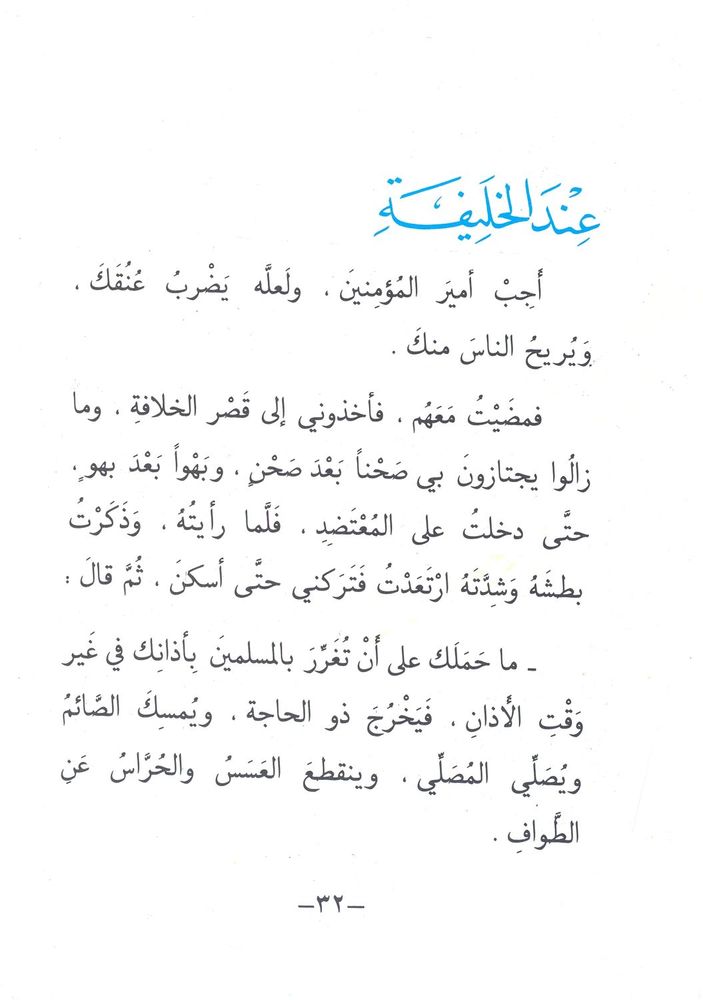 عِنْدَ الخَلِيفَةِ
أَجِبْ أميَر المُؤمِنينَ ، ولَعلَّه يَضْربُ عُنُقَكَ ،
وَيُريحُ الناسَ منكَ .
فمضَيْتُ مَعَهُم ، فأخذوني إلى قَصْر الخلافةِ ، وما
زالُوا يجتازونَ بي صَحْناً بَعْد صَحْنٍ ، وبَهْواً بَعْدَ بهوٍ ،
حتَّى دخلتُ على المُعْتَضدِ ، فَلَّما رأيتُهُ ، وَذَكَرْتُ
بطشَهُ وَشدَّتَهُ ارْتَعَدْتُ فَتَركني حتَّى أسكنَ ، ثُمَّ قالَ :
ـ ما حَمَلَك على أَنْ تُغَرِّرَ بالمسلمينَ بِأذانِك في غَير
وَقْتِ الأَذانِ ، فَيَخْرُجَ ذو الحاجة ، ويُمسِكَ الصَّائمُ
ويُصَلِّي المُصَلِّي ، وينقطعَ العَسَسُ والحُرَّاسُ عَنِ
الطَّوافِ .
–٣٢–